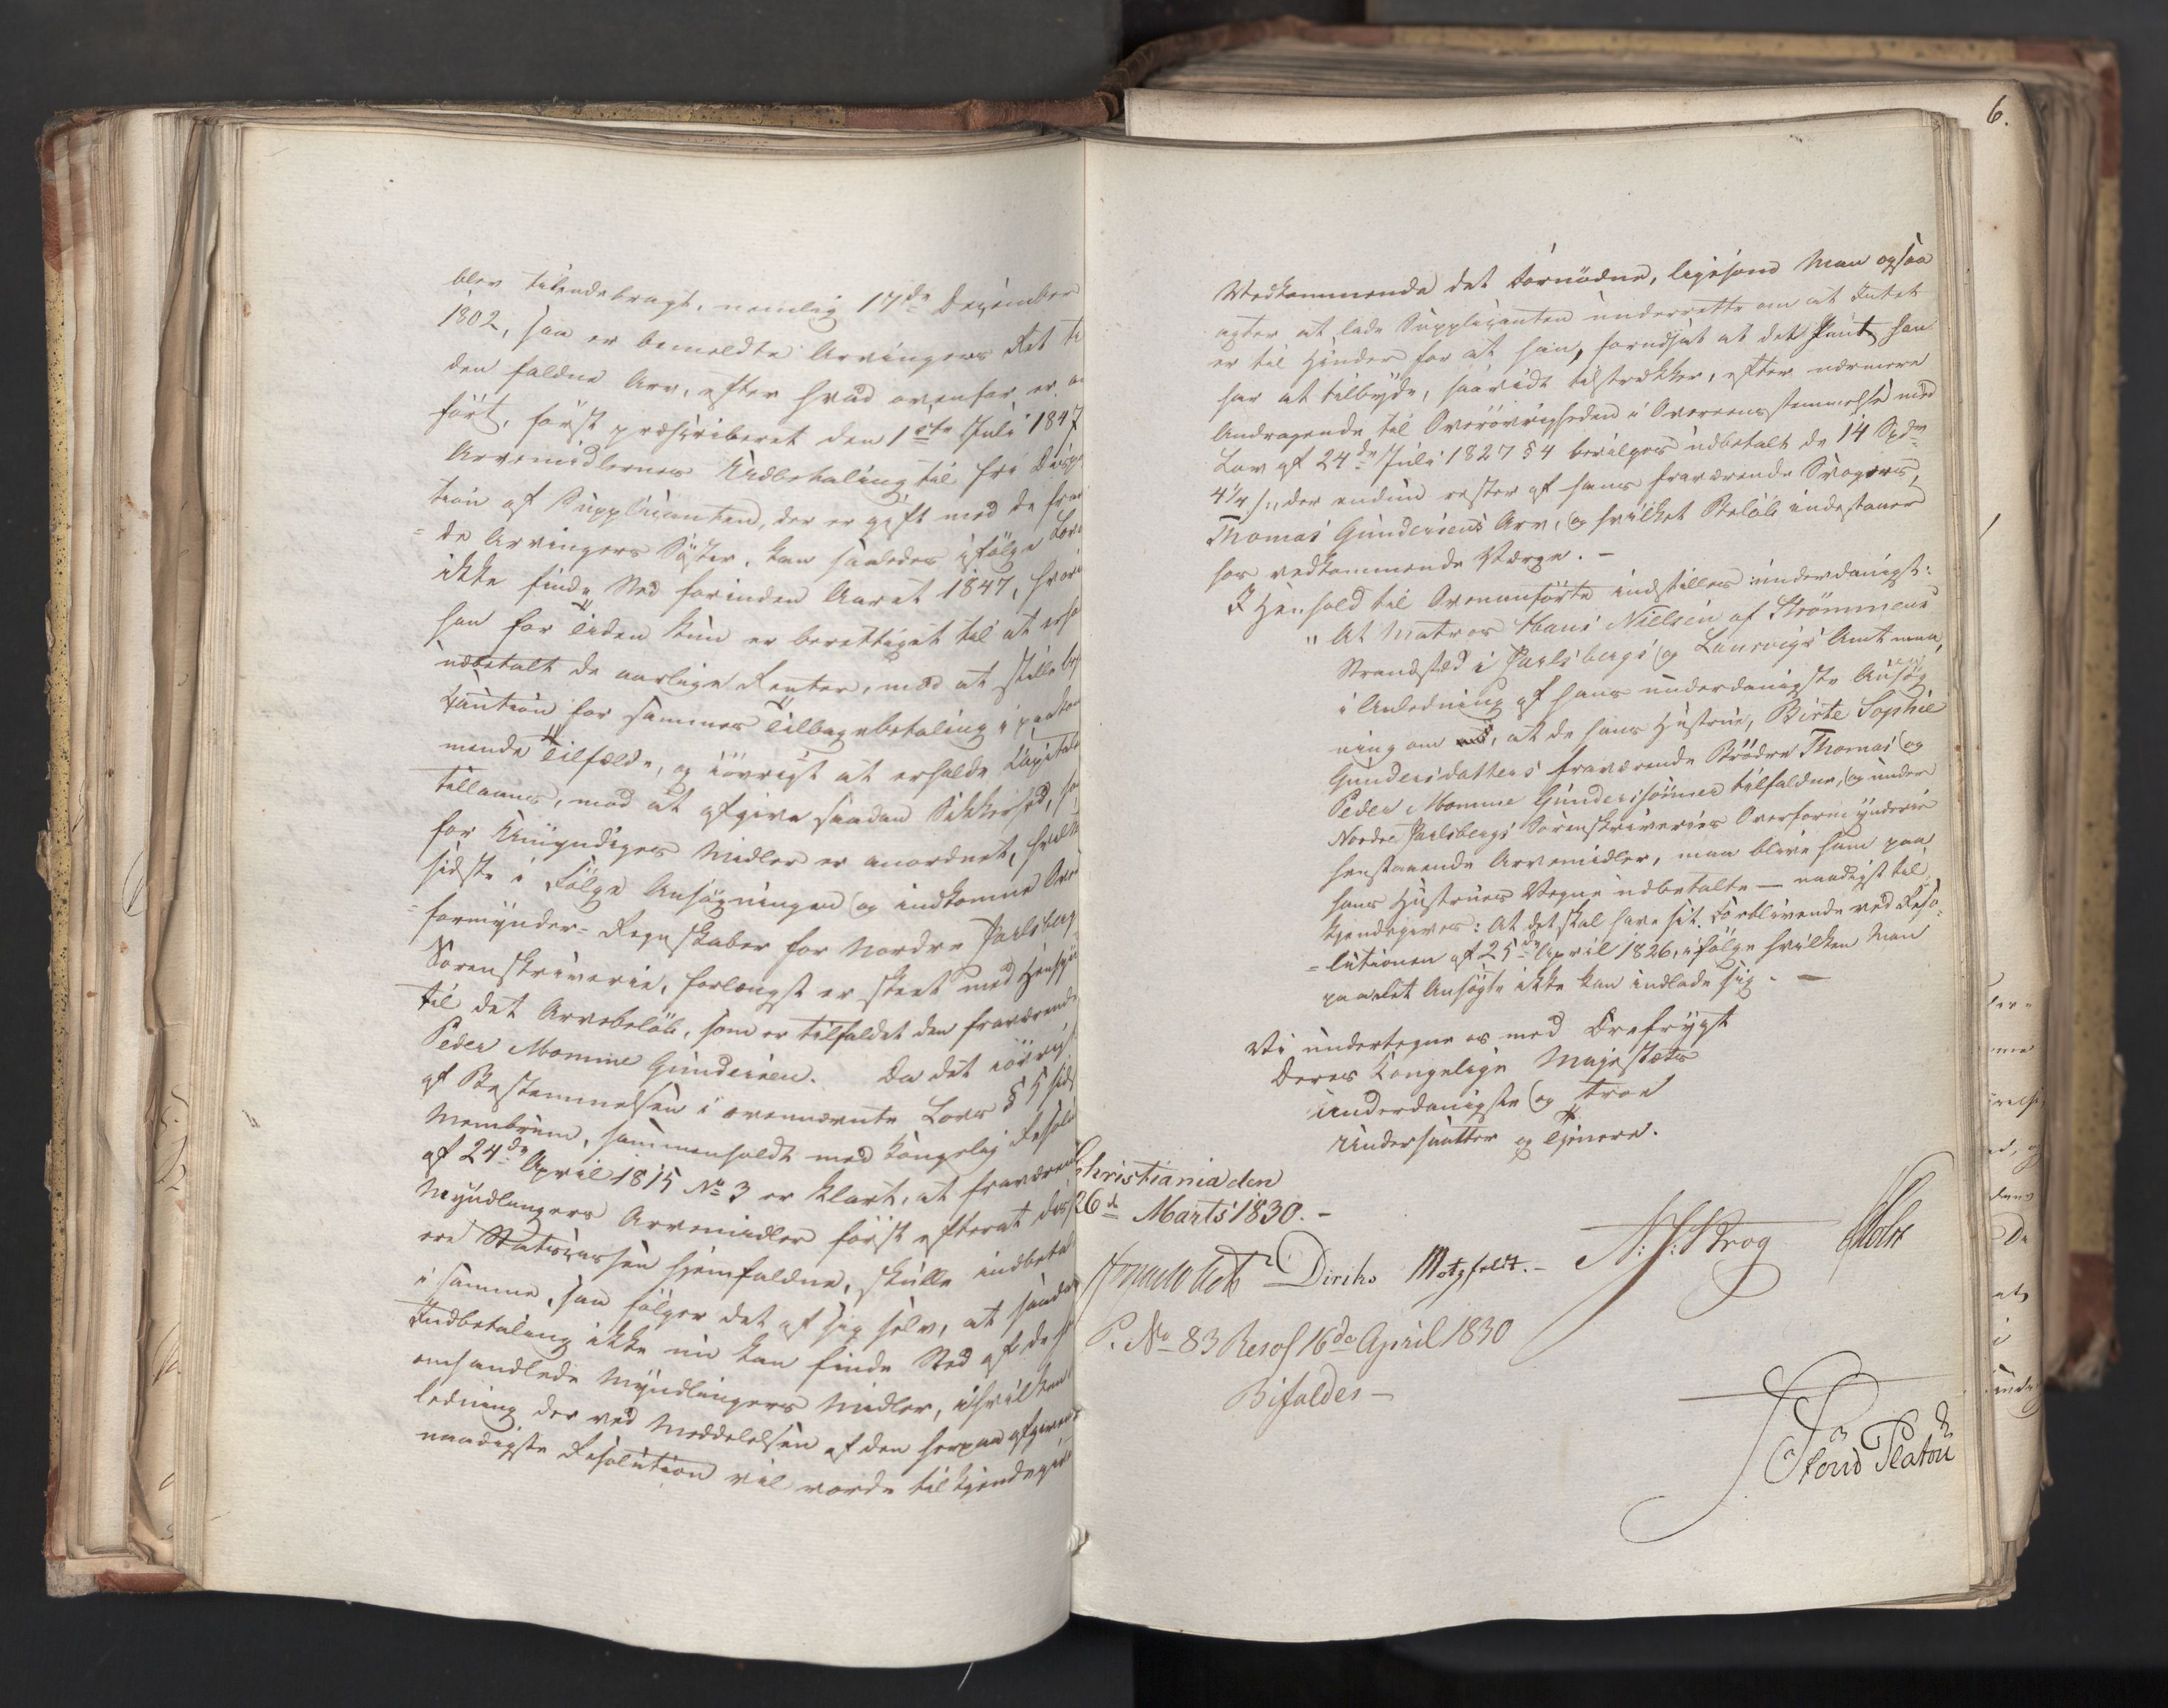 blev tilendebragt, nemlig 17de December
1802, saa er bemeldte Arvingers Ret ti
den faldne Arv, efter hvad ovenfor er an
ført, først præscriberet den 1ste Juli 1847
Arvemidlernes Udbetaling til fri Dispo
tion af Supplicanten, der er gift med de fra
de Arvingers Søster, kan saaledes ifølge Lov
ikke finde Sted forinden Aaret 1847, hvori
han for Tiden kun er berettiget til at erho
udbetalt de aarlige Renter, mod at stille
Caution for sammes Tilbagebetaling i paakom
mende Tilfælde, og iøvrigt at erholde Capitale
tillaans, mod at afgive saadan Sikkerhed, so
for Umyndiges Midler er anordnet, hvilke
sidste i Følge Ansøgningen og indkomne Over
=formynder-Regnskaber for Nordre Jarlsberg
Sorenskriverie, forlængst er skeet med Hensyn
til det Arvebeløb, som er tilfaldet den fraværende
Peder Momme Gundersen. Da det iøvrigt
af Bestemmelsen i ovennævnte Lovs § 5 sidst
Membrum, sammenholdt med Kongelig Resolu
af 24de April 1815 No 3 er klart, at fraværende
Myndlingers Arvemidler først efterat dis
ere Statscassen hjemfaldne, skulle indbetal
i samme, saa følger det af sig selv, at saadan
Indbetaling ikke nu kan finde Sted af de h
omhandlede Myndlingers Midler, i hvilken
ledning der ved Meddelelsen af den herpaa afgivend
naadigste Resolution vil vorde tilkjendegiv
6.
Vedkommende det Fornødne, ligesom Man ogsaa
agter at lade Supplicanten underrette om at Intet
er til Hinder for at han, forudsat at det Pant han
har at tilbyde, saavidt tilstrækker, efter nærmere
Andragende til Overøvrigheden i Overeensstemmelse med
Lov af 24de Juli 1827 § 4 bevilges udbetalt de 14 Spd
4¼ s., der endnu rester af hans fraværende Svogers,
Thomas Gundersens Arv, og hvilket Beløb indestaaer
hos vedkommende Værge. -
I Henhold til Ovenanførte indstilles underdanigst:
"At Matros Hans Nielsen af Strømmens
Strandsted i Jarlsbergs og Laurvigs Amt maa,
i Anledning af hans underdanigste Ansøg
ning om, at de hans Hustrue, Birte Sophie
Gundersdatters fraværende Brødre Thomas og
Peder Momme Gunderssønner tilfaldne, og under
Nordre Jarlsbergs Sorenskriveries Overformynderie
henstaaende Arvemidler, maa blive ham paa
hans Hustrues Vegne udbetalte — naadigst til
kjendegives: At det skal have sit Forblivende ved Reso=
=lutionen af 25de April 1826, ifølge hvilken Man
paa det Ansøgte ikke kan indlade sig. —
Vi undertegne os med Ærefrygt
Deres Kongelige Majestæts
Underdanigste og troe
Undersaatter og Tjenere.
Christiania den
26de Marts 1830. -
Diriks Motzfeldt. - N: J: Krog Holst
P. No 83 Resol 16de April 1830
Bifaldes —
Stoud Platou